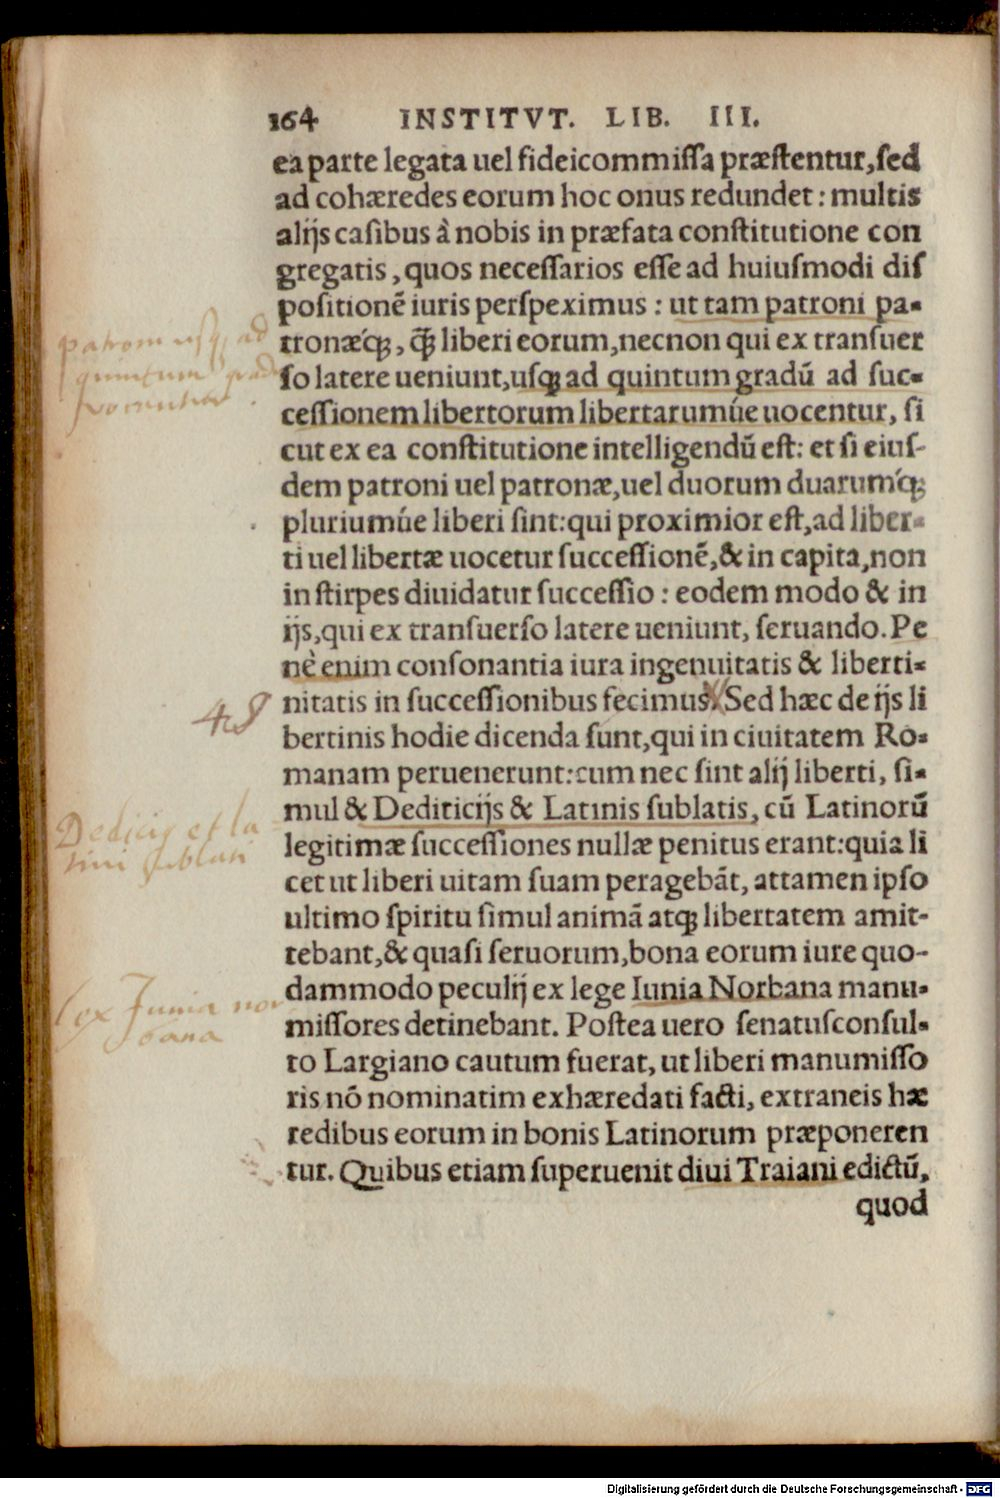 164 INSTITVT. LIB. III.
ea parte legata uel fideicommissa præstentur, sed
ad cohæredes eorum hoc onus redundet: multis
alijs casibus à nobis in præfata constitutione con
gregatis, quos necessarios esse ad huiusmodi dis
positionẽ iuris perspeximus: ut tam patroni pa-
tronæq́;, q̃ꝫ liberi eorum, necnon qui ex transuer
so latere ueniunt, usqꝫ ad quintum gradũ ad suc-
cessionem libertorum libertarumúe uocentur, si
cut ex ea constitutione intelligendũ est: et si eius-
dem patroni uel patronæ, uel duorum duarumq́;
pluriumúe liberi sint: qui proximior est, ad liber-
ti uel libertæ uocetur successionẽ, & in capita, non
in stirpes diuidatur successio: eodem modo & in
ijs, qui ex transuerso latere ueniunt, seruando. Pe
nè enim consonantia iura ingenuitatis & liberti-
nitatis in successionibus fecimus. Sed hæc de ijs li
bertinis hodie dicenda sunt, qui in ciuitatem Ro-
manam peruenerunt: cum nec sint alij liberti, si-
mul & Dediticijs & Latinis sublatis, cũ Latinorũ
legitimæ successiones nullæ penitus erant: quia li
cet ut liberi uitam suam peragebãt, attamen ipso
ultimo spiritu simul animã atqꝫ libertatem amit-
tebant, & quasi seruorum, bona eorum iure quo-
dammodo peculij ex lege Iunia Norbana manu-
missores detinebant. Postea uero senatusconsul-
to Largiano cautum fuerat, ut liberi manumisso
ris nõ nominatim exhæredati facti, extraneis hæ
redibus eorum in bonis Latinorum præponeren
tur. Quibus etiam superuenit diui Traiani edictũ,
quod
patroni usqꝫ ad
quintum grad
vocentur
Dedicij et la
tini sublati
lex Junia nor
bana
Digitalisierung gefördert durch die Deutsche Forschungsgemeinschaft - DFG